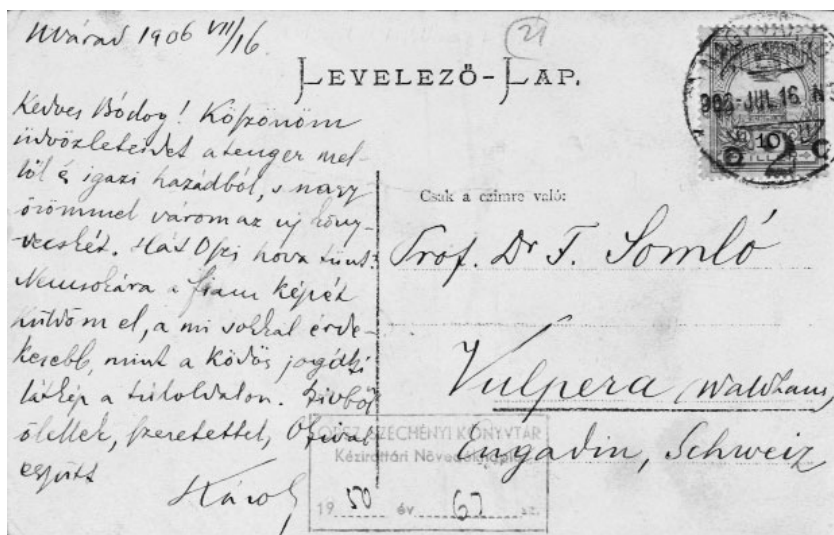 Nvárad 1906 VII/16
21
LEVELEZŐ-LAP.
Kedves Bódog! Köszönöm
üdvözleteidet a tenger mel-
től és igazi hazádból, s nagy
örömmel várom az új köny-
vecskét. Hát Opi hova tűnt?
Nemsokára a fiam képét
küldöm el, a mi sokkal érde-
kesebb, mint a ködös
látkép a túloldalon. Szivből
ölellek, szeretettel,
együtt
Károly
906 JUL 16
10
Csak a czimre való:
Prof. Dr F. Somló
Vulpera (Waldhaus)
Engadin, Schweiz
ORSZ. SZÉCHÉNYI KÖNYVTÁR
Kézirattári Növedéknapló
1950 év 67 sz.